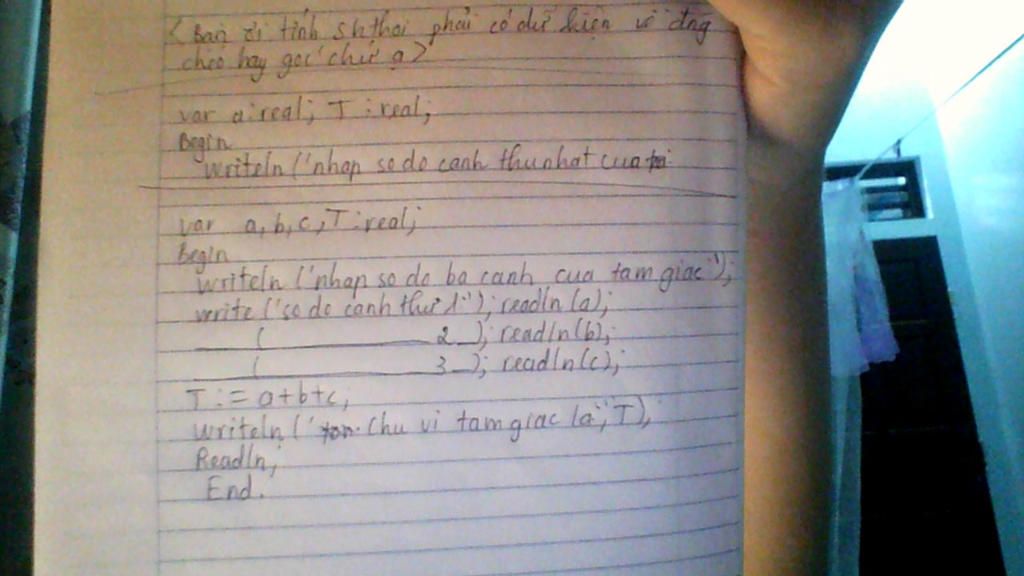 <Bạn ơi tính sh thoi phải có dữ kiện về đng
chéo hay góc chứ ạ>
var a:real; T:real;
Begin
Writeln ('nhap so do canh thu nhat cua
var a,b,c,T:real;
Begin
Writeln ('nhap so do ba canh cua tam giac');
write ('so do canh thu 1:'); readln (a);
( 2 ); readln (b);
( 3 ); readln (c);
T:= a+b+c;
Writeln (' Chu vi tam giac la:',T);
Readln;
End.